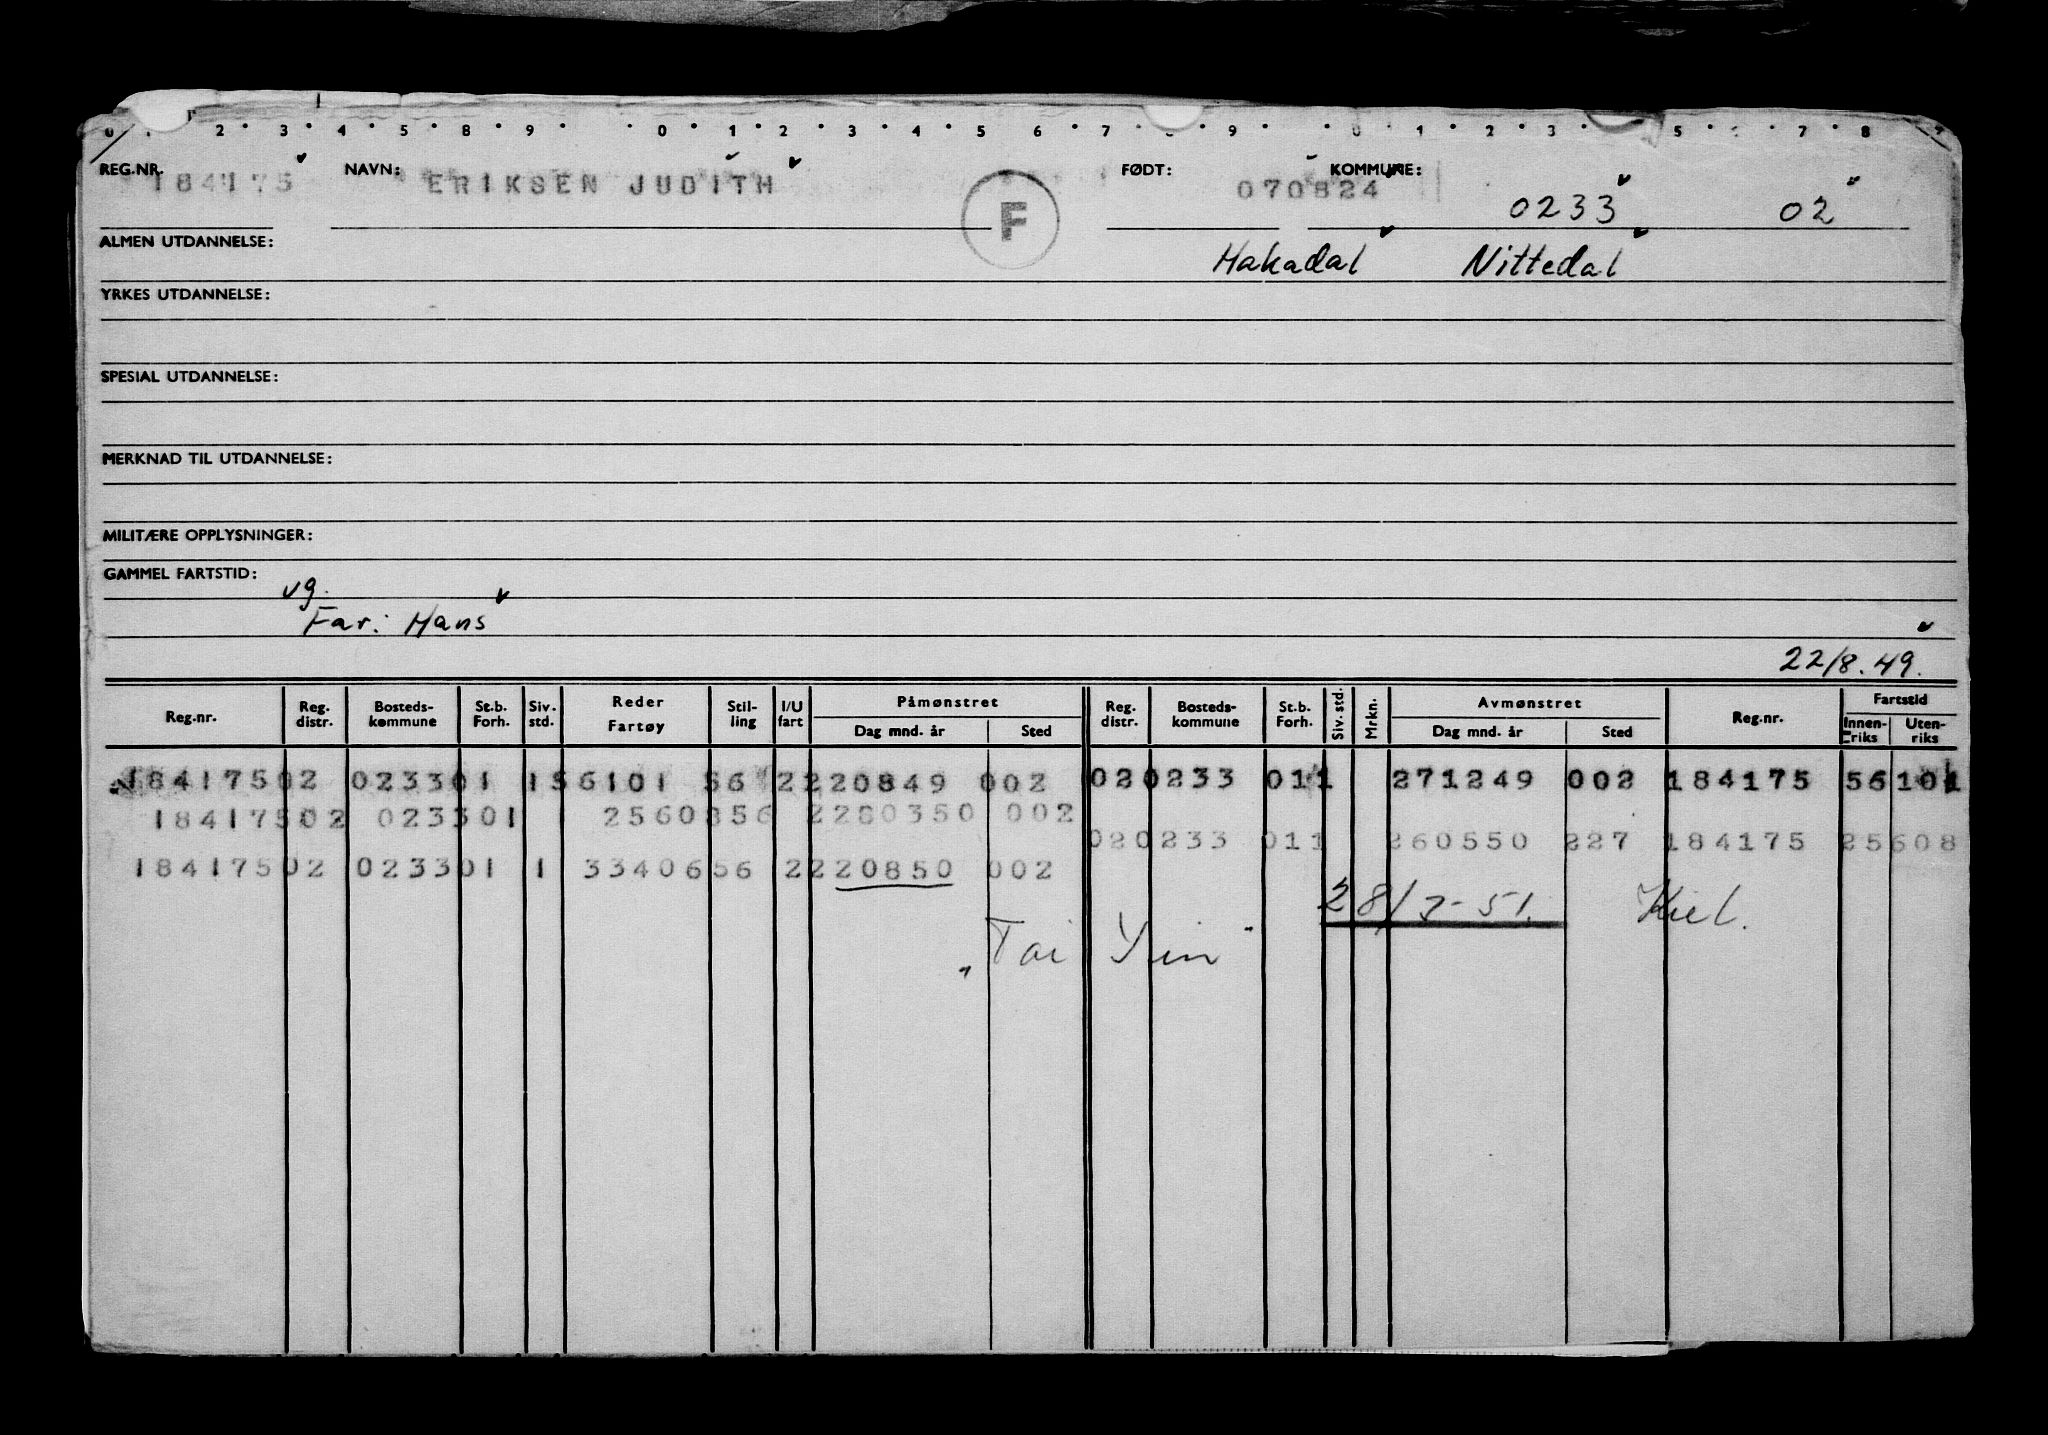 0 1 2 3 4 5 8 9 0 1 2 3 4 5 6 7 8 9 0 1 2 3 5 6 7 8
REG.NR. 184175 NAVN: ERIKSEN JUDITH FØDT: 070824 KOMMUNE: 0233 02
F
ALMEN UTDANNELSE: Hakadal Nittedal
YRKES UTDANNELSE:
SPESIAL UTDANNELSE:
MERKNAD TIL UTDANNELSE:
MILITÆRE OPPLYSNINGER:
GAMMEL FARTSTID:
vg.
Far: Hans
22/8.49.
Reg.nr. Reg. distr. Bosteds-kommune St.b. Forh. Siv. std. Reder Fartøy Stil-ling I/U fart Påmønstret Dag mnd. år Sted Reg. distr. Bosteds-kommune St.b. Forh. Siv. std. Mrkn. Avmønstret Dag mnd. år Sted Reg.nr. Fartstid Innen-riks Uten-riks
18417502 023301 156101 56 2220849 002 020233 011 271249 002 184175 56101
18417502 023301 2560856 2280350 002
020233 011 260550 227 184175 25608
18417502 023301 1 3340656 2220850 002
28/3-51. Kiel.
"Tai Yin"